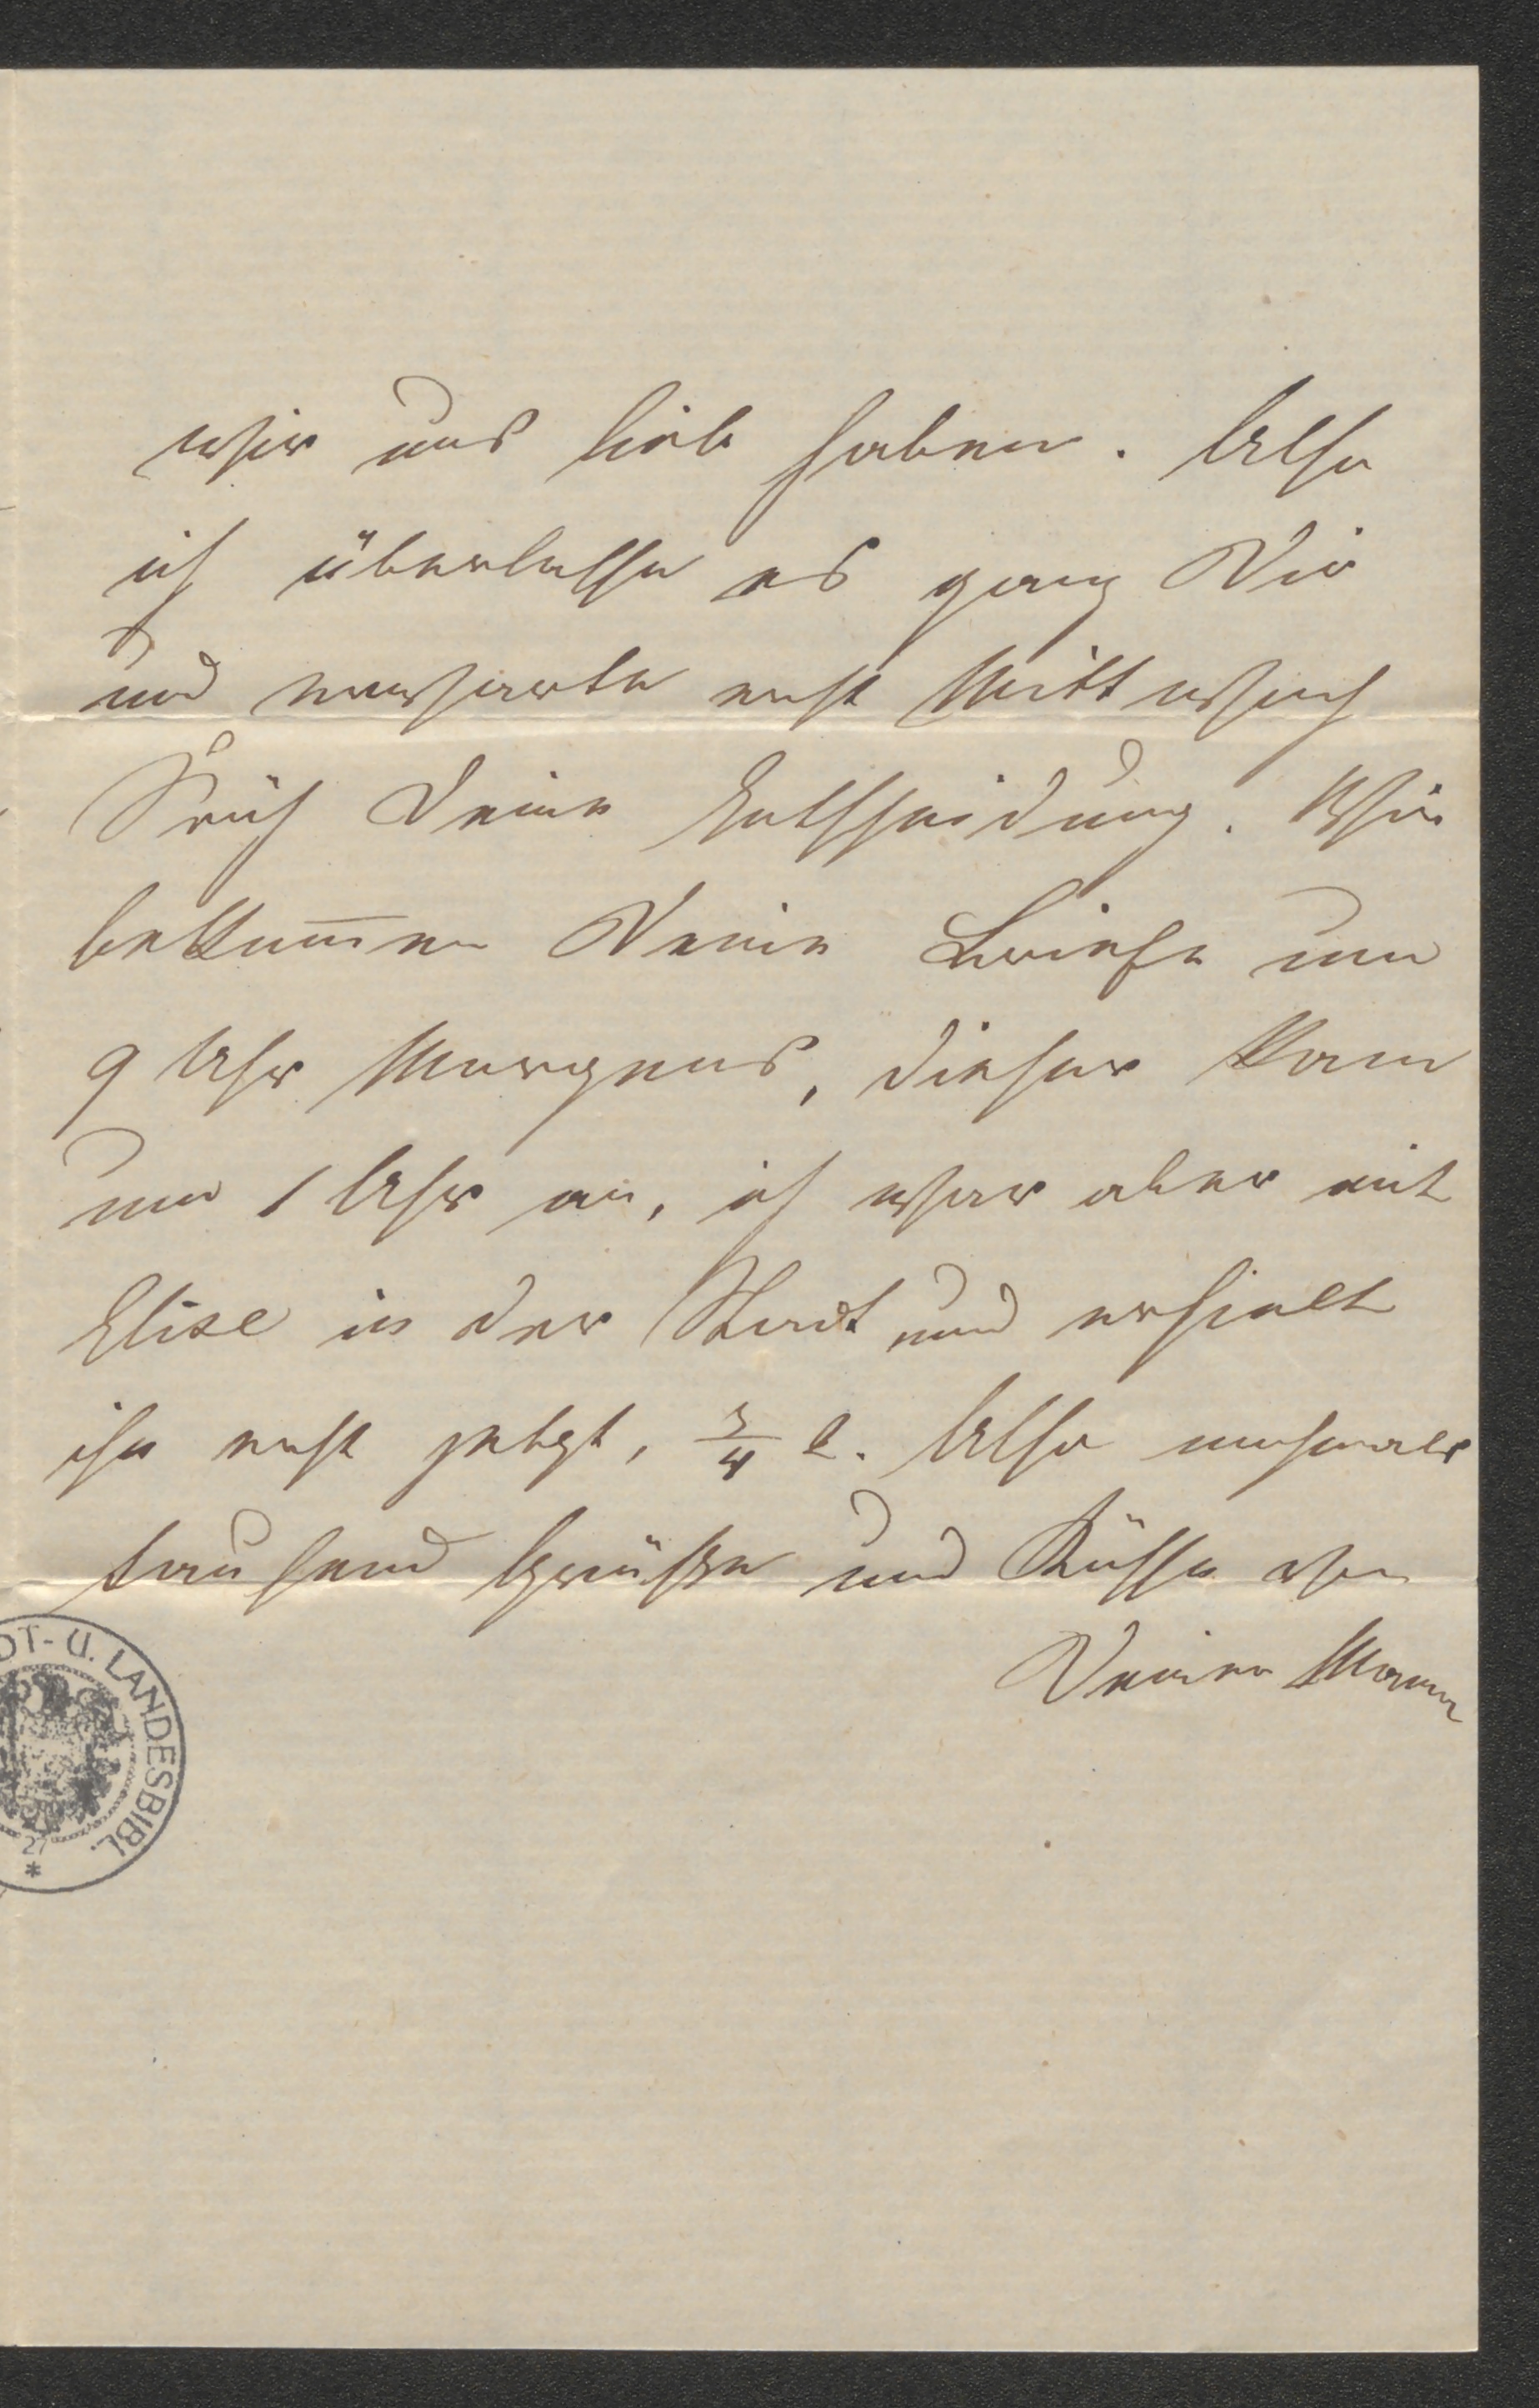 wir uns lieb haben. Also
ich überlasse es ganz Dir
und erwarte erst Mittwoch
Früh Deine Entscheidung. Wir
bekom̅en Deine Briefe um
9 Uhr Morgens, dieser kam
um 1 Uhr an, ich war aber mit
Elise in der Stadt und erhielt
ihn erst jetzt, 3/4 2. Also nochmals
tausend Grüße und Küsse von
Deiner
DT- U. LANDESBIBL.
21
*